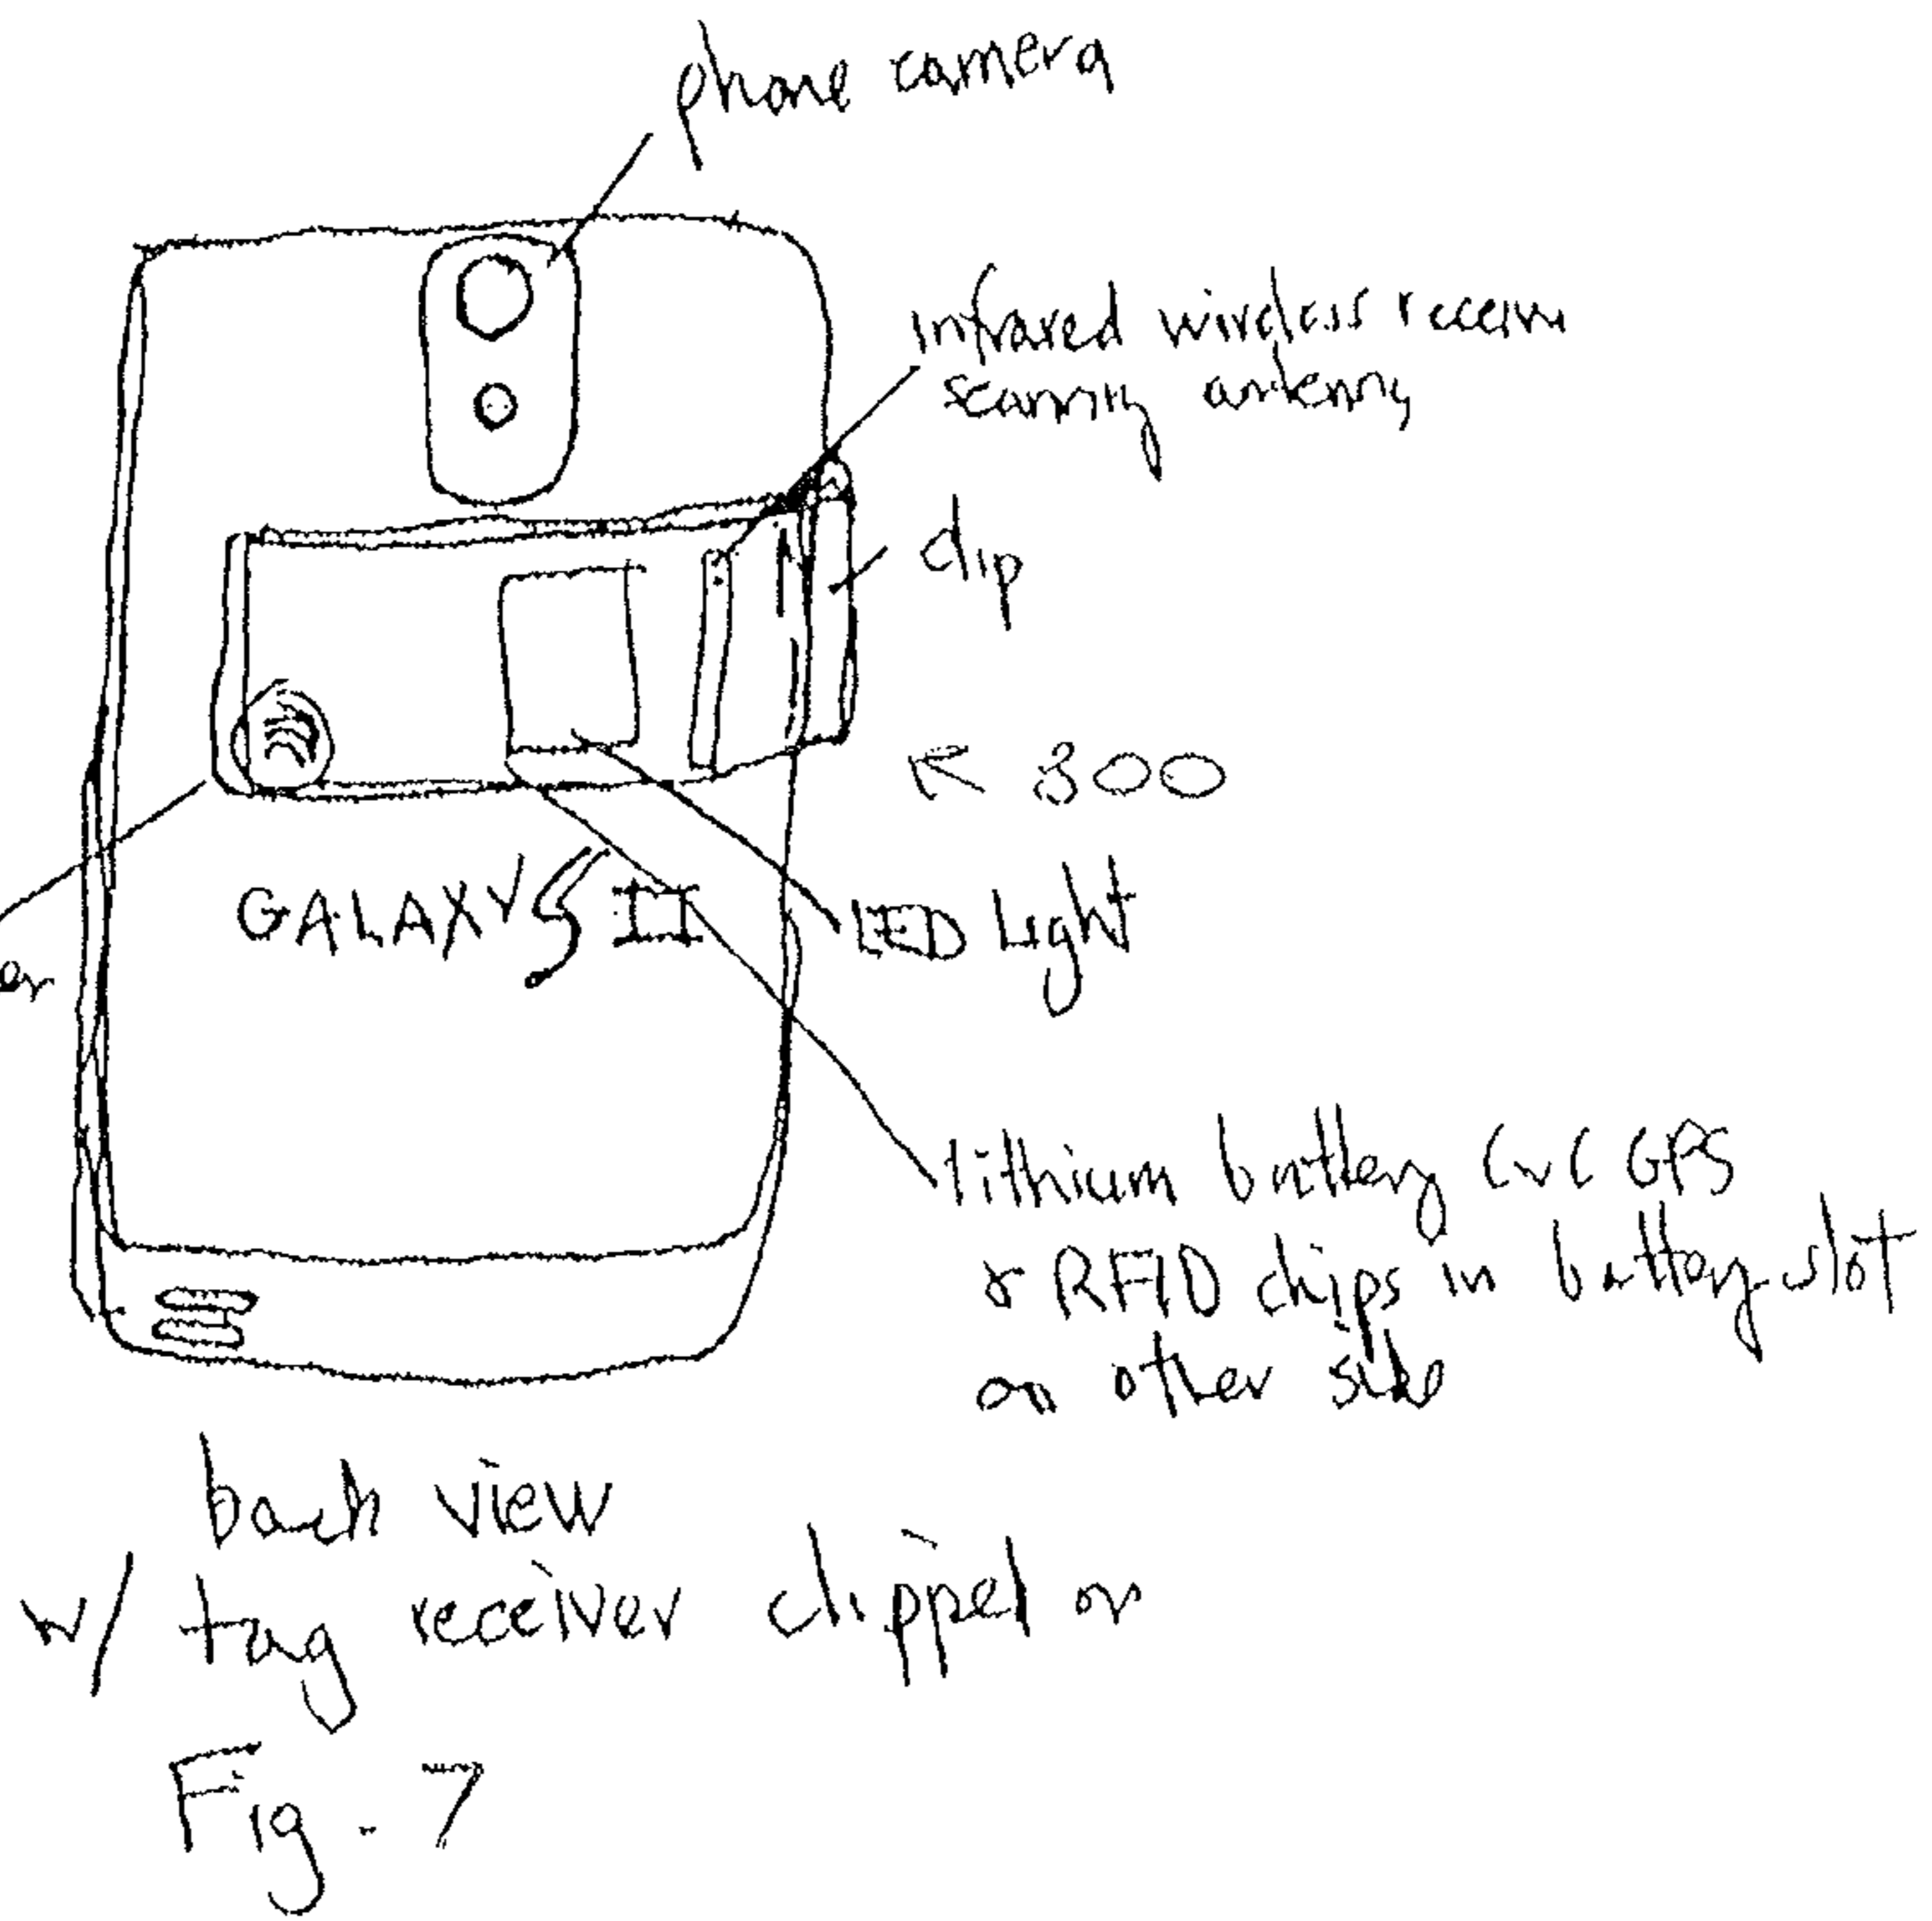 phone camera
infrared wireless receive
scanning antenna
clip
← 800
GALAXY S II
LED Light
er
lithium battery CvC GPS
& RFID chips in battery slot
on other side
back view
w/ tag receiver clipped on
Fig. 7